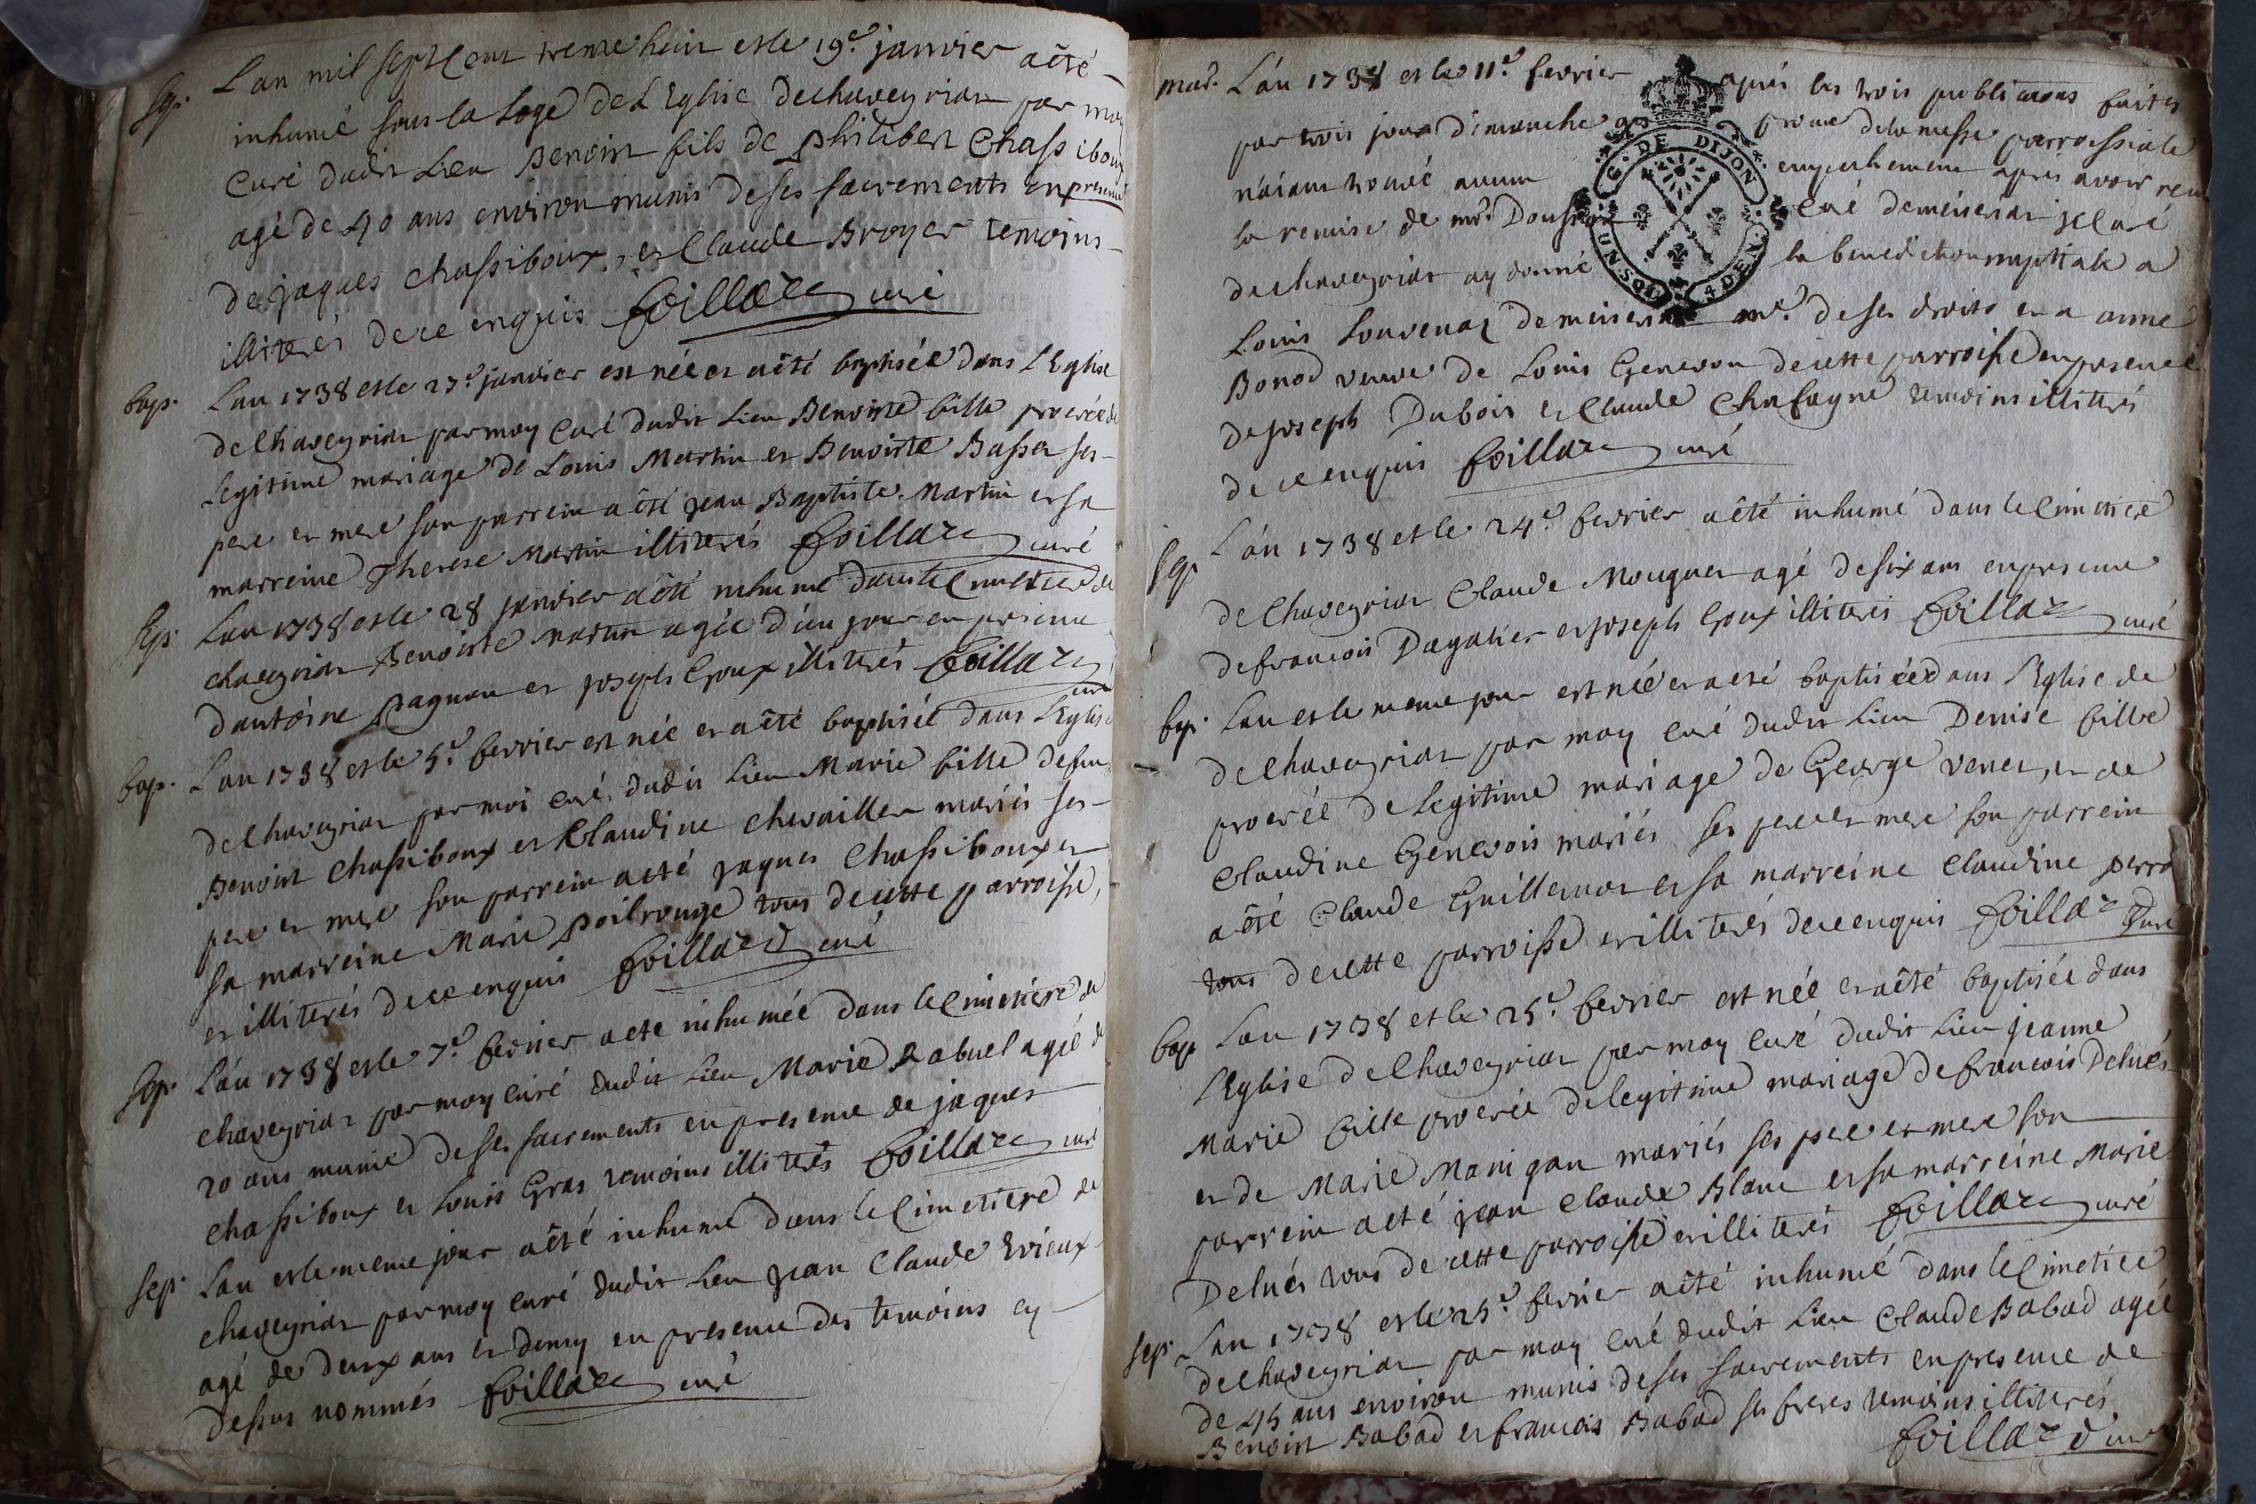 sep. L'an mil sept cent trente huit et le 19e janvier a été
inhumé sous la loge de L'Eglise de chaveyriat par moy
Curé dudit Lieu Benoit fils de philibert Chassiboux
agé de 40 ans environ munis de ses sacrements en presence
de jaques chassiboux, et Claude Broyer temoins
illiterés de ce enquis foillard curé
bap. L'an 1738 et le 27e janvier est née et a été baptisée dans L'Eglise
de Chaveyriat par moy Curé dudit Lieu Benoiste fille procréée de
Legitime mariage de Louis Martin et Benoiste Basset ses
pere et mere son parrein a été jean Baptiste Martin et sa
marreine Therese Martin illiterés foillard curé
sep. L'an 1738 et le 28 janvier a été inhumé dans le cimetiere de
chaveyriat Benoiste Martin agée d'un jour en presence
d'antoine pagnon et joseph Goux illiterés foillard
curé
bap. L'an 1738 et le 5e fevrier est née et a été baptisée dans L'Eglise
de Chaveyriat par moi curé dudit Lieu Marie fille de feu
Benoit Chassiboux et Claudine chevailler mariés ses
pere et mere son parrein a eté jaques Chassiboux et
sa marreine Marie poilrouge tous de cette parroisse,
et illiterés de ce enquis foillard curé
sep. L'an 1738 et le 7e fevrier a eté inhumée dans le Cimetiere de
chaveyriat par moy curé dudit Lieu Marie Rabuel agée de
20 ans munie de ses sacrements en presence de jaques
chassiboux et Louis Gras temoins illiterés foillard curé
sep. L'an et le meme jour a été inhumé dans le Cimetiere de
chaveyriat par moy curé dudit Lieu jean Claude Evieux
agé de deux ans et demy en presence des temoins cy
dessus nommés foillard curé
mar. L'an 1738 et le 11e fevrier après les trois publications faites
par trois jours dimanche au prone de la messe parroissiale
n'aiant trouvé aucun empechement après avoir reçu
la remise de mr. curé de mezeriat je Curé
de chaveyriat ay donné la benediction nuptiale a
Louis Louvenaz de mezeriat mr. de ses droits et a anne
Bonod veuve de Louis Genevon de cette parroisse en presence
de joseph Dubois et Claude Chafagne temoins illiterés
de ce enquis foillard curé
G. DE DIJON
UN SOL 4 DEN
sep. L'an 1738 et le 24e fevrier a été inhumé dans le Cimetiere
de Chaveyriat Claude Mouguet agé de six ans en presence
de francois Dagalier et joseph Goux illiterés foillard curé
bap. L'an et le meme jour est née et a eté baptisée dans L'Eglise de
de Chaveyriat par moy curé dudit Lieu Denise fille
procréé de Legitime mariage de George venet, et de
Claudine Genevois mariés ses pere et mere son parrein
a été Claude Guillermot et sa marreine Claudine perro
tous de cette parroisse et illiterés de ce enquis foillard Curé
bap. L'an 1738 et le 25e fevrier est née et a été baptisée dans
L'Eglise de Chaveyriat par moy curé dudit Lieu jeanne
Marie fille procréé de legitime mariage de francois Delués
et de Marie Manigan mariés ses pere et mere son
parrein a eté jean Claude Blanc et sa marreine Marie
Delués tous de cette parroisse et illiterés foillard curé
sep. L'an 1738 et le 25e fevrier a été inhumé dans le Cimetiere
de chaveyriat par moy curé dudit Lieu Claude Babad agée
de 45 ans environ munis de ses sacrements en presence de
Benoit Babad et francois Babad ses freres temoins illiterés
foillard curé